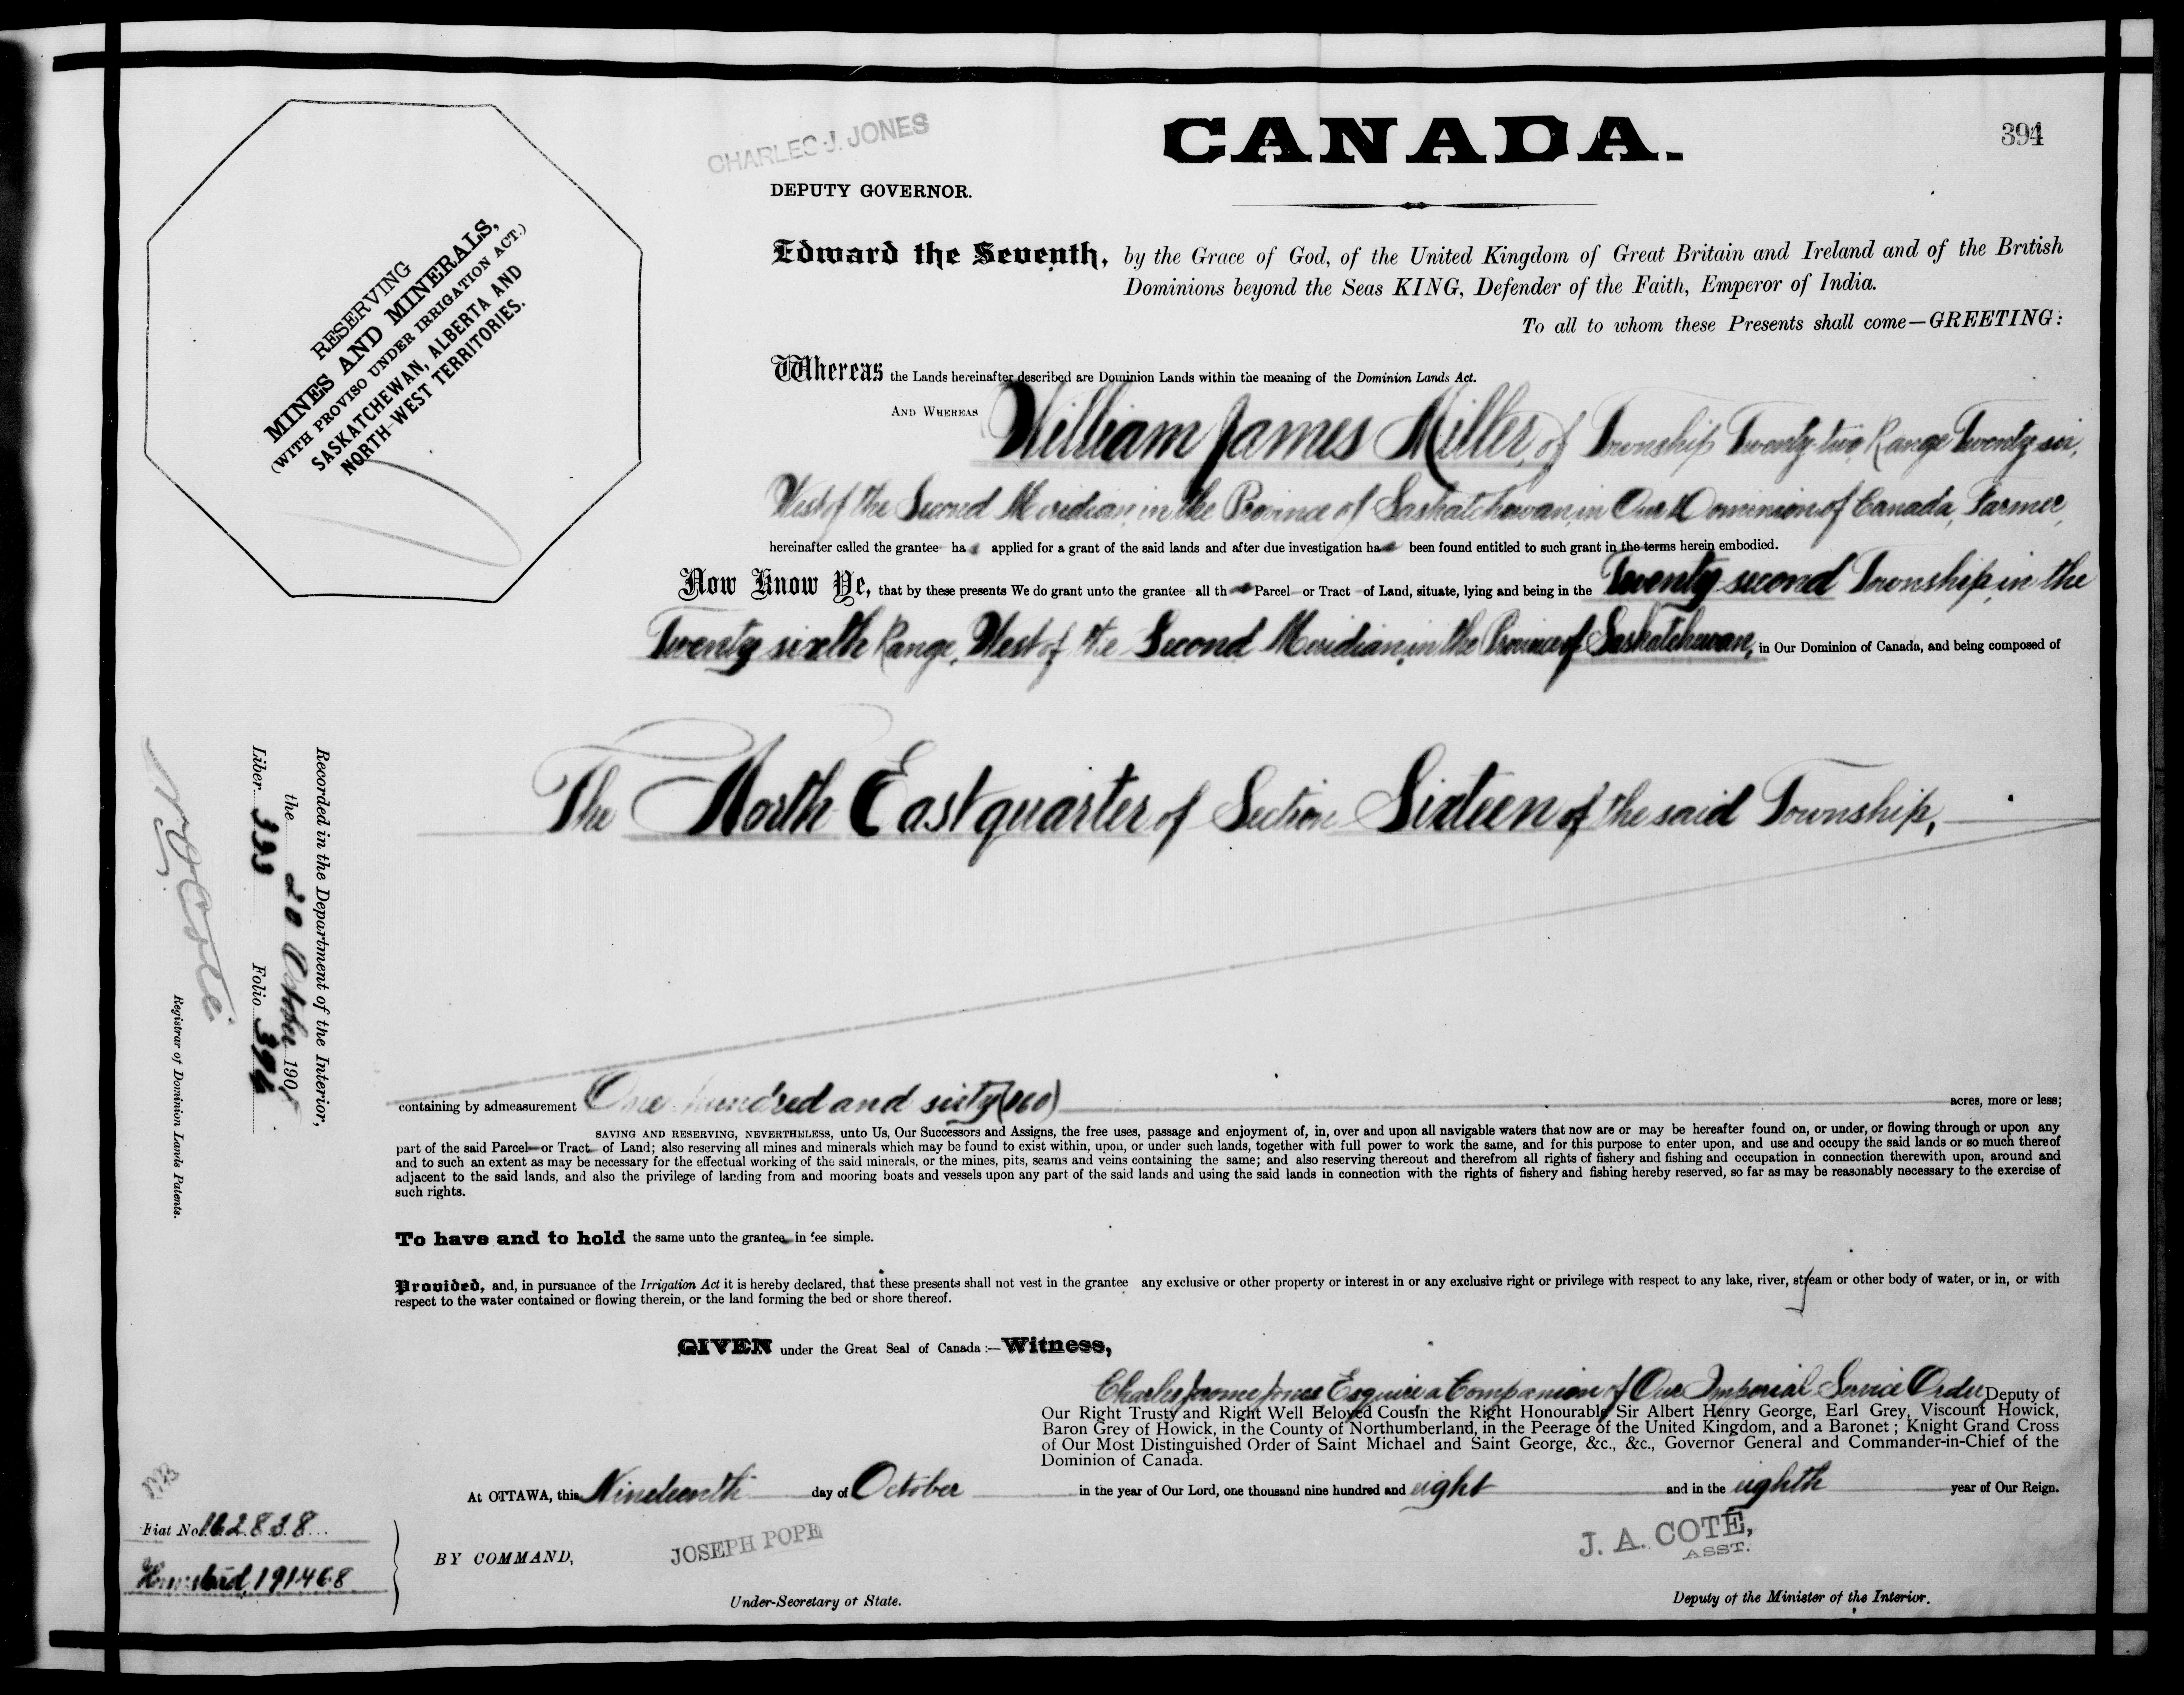 CHARLES J. JONES
CANADA.
394
DEPUTY GOVERNOR.
Edward the Seventh, by the Grace of God, of the United Kingdom of Great Britain and Ireland and of the British
Dominions beyond the Seas KING, Defender of the Faith, Emperor of India.
To all to whom these Presents shall come—GREETING:
RESERVING
MINES AND MINERALS,
(WITH PROVISO UNDER IRRIGATION ACT.)
SASKATCHEWAN, ALBERTA AND
NORTH-WEST TERRITORIES.
Whereas the Lands hereinafter described are Dominion Lands within the meaning of the Dominion Lands Act.
AND WHEREAS William James Miller, of Township Twenty-two, Range Twenty-six,
West of the Second Meridian, in the Province of Saskatchewan, in Our Dominion of Canada, Farmer,
hereinafter called the grantee has applied for a grant of the said lands and after due investigation has been found entitled to such grant in the terms herein embodied.
Now Know Ye, that by these presents We do grant unto the grantee all that Parcel or Tract of Land, situate, lying and being in the Twenty-second Township, in the
Twenty sixth Range, West of the Second Meridian, in the Province of Saskatchewan, in Our Dominion of Canada, and being composed of
The North East quarter of Section Sixteen of the said Township,
containing by admeasurement One hundred and sixty (160) acres, more or less;
SAVING AND RESERVING, NEVERTHELESS, unto Us, Our Successors and Assigns, the free uses, passage and enjoyment of, in, over and upon all navigable waters that now are or may be hereafter found on, or under, or flowing through or upon any
part of the said Parcel or Tract of Land; also reserving all mines and minerals which may be found to exist within, upon, or under such lands, together with full power to work the same, and for this purpose to enter upon, and use and occupy the said lands or so much thereof
and to such an extent as may be necessary for the effectual working of the said minerals, or the mines, pits, seams and veins containing the same; and also reserving thereout and therefrom all rights of fishery and fishing and occupation in connection therewith upon, around and
adjacent to the said lands, and also the privilege of landing from and mooring boats and vessels upon any part of the said lands and using the said lands in connection with the rights of fishery and fishing hereby reserved, so far as may be reasonably necessary to the exercise of
such rights.
To have and to hold the same unto the grantee in fee simple.
Provided, and, in pursuance of the Irrigation Act it is hereby declared, that these presents shall not vest in the grantee any exclusive or other property or interest in or any exclusive right or privilege with respect to any lake, river, stream or other body of water, or in, or with
respect to the water contained or flowing therein, or the land forming the bed or shore thereof.
GIVEN under the Great Seal of Canada :—Witness,
Charles Jerome Jones Esquire a Companion of Our Imperial Service Order, Deputy of
Our Right Trusty and Right Well Beloved Cousin the Right Honourable Sir Albert Henry George, Earl Grey, Viscount Howick,
Baron Grey of Howick, in the County of Northumberland, in the Peerage of the United Kingdom, and a Baronet ; Knight Grand Cross
of Our Most Distinguished Order of Saint Michael and Saint George, &c., &c., Governor General and Commander-in-Chief of the
Dominion of Canada.
At OTTAWA, this Nineteenth day of October in the year of Our Lord, one thousand nine hundred and eight and in the eighth year of Our Reign.
BY COMMAND,
JOSEPH POPE
Under-Secretary of State.
J. A. COTE,
ASST.
Deputy of the Minister of the Interior.
Recorded in the Department of the Interior,
the 20 October 1908
Liber 333 Folio 394
N O Coté
Registrar of Dominion Lands Patents.
Fiat No. 162838
Homestead, 191468